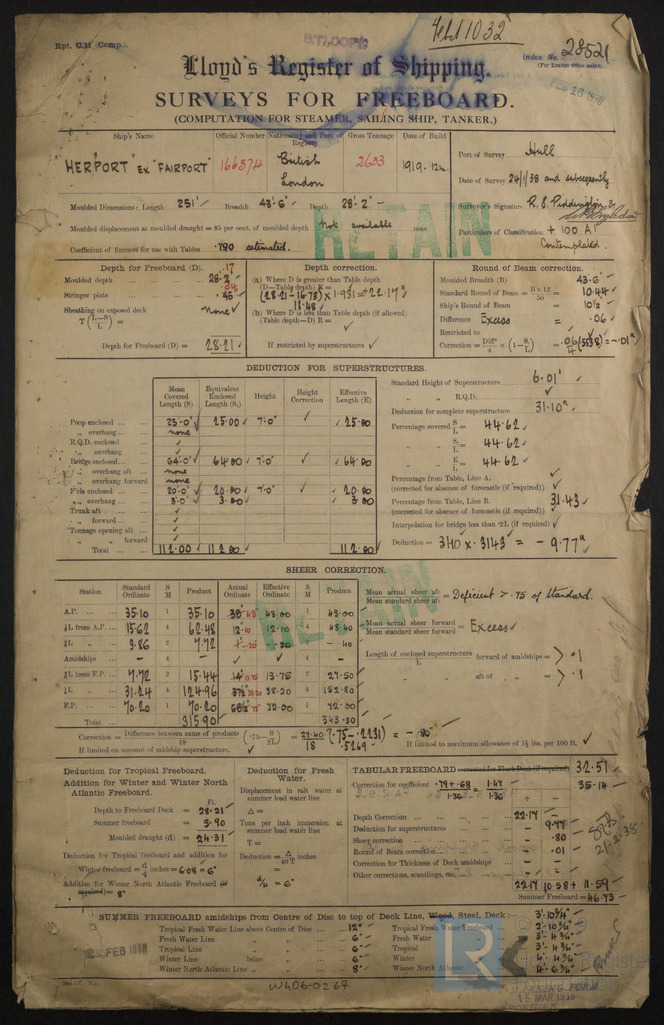 Rpt. C.11 (Comp.).
Febl 1032
Index. No. 28521
(For London Office only).
Lloyd's Register of Shipping.
SURVEYS FOR FREEBOARD.
(COMPUTATION FOR STEAMER, SAILING SHIP, TANKER.)
Ship's Name Official Number Nationality and Port of Registry Gross Tonnage Date of Build
"HERPORT" Ex "FAIRPORT" 166374 British London 2623 1919. 12m.
Port of Survey Hull
Date of Survey 24/1/38 and subsequently
Surveyor's Signature
Particulars of Classification + 100 A1 Contemplated.
Moulded Dimensions: Length 251' Breadth 43'-6" Depth 28'-2"
Moulded displacement at moulded draught = 85 per cent. of moulded depth Not available tons
Coefficient of fineness for use with Tables .790 estimated.
RETAIN
Depth for Freeboard (D).
Moulded depth
Stringer plate
Sheathing on exposed deck None
T(L-S/L) =
Depth for Freeboard (D) = 28.21
Depth correction.
(a) Where D is greater than Table depth
(D-Table depth) R =
(28.21-16.73) x 1.931 = +22.17"
11.48
(b) Where D is less than Table depth (if allowed)
(Table depth-D) R =
If restricted by superstructures
Round of Beam correction.
Moulded Breadth (B) 43.6
Standard Round of Beam = B×12/50 = 10.44
Ship's Round of Beam = 10½
Difference Excess .06
Restricted to
Correction = Diff/4 × (1-S1/L) = .06/4 (.5538) = -.01"
DEDUCTION FOR SUPERSTRUCTURES.
Mean Covered Length (S) Equivalent Enclosed Length (S1) Height Height Correction Effective Length (E)
Poop enclosed 25.0' 25.00 7'.0" 25.00
" overhang none
R.Q.D. enclosed
" overhang
Bridge enclosed 64.0' 64.00 7'.0" 64.00
" overhang aft none
" overhang forward none
F'cle enclosed 20.0' 20.00 7'.0" 20.00
" overhang 3.0' 3.00 3.00
Trunk aft
" forward
Tonnage opening aft
" " forward
Total 112.00 112.00 112.00
Standard Height of Superstructure 6.01'
" " R.Q.D.
Deduction for complete superstructure 31.10"
Percentage covered S/L = 44.62
" " S1/L = 44.62
" " E/L = 44.62
Percentage from Table, Line A.
(corrected for absence of forecastle (if required))
Percentage from Table, Line B. 31.43
(corrected for absence of forecastle (if required))
Interpolation for bridge less than .2L (if required)
Deduction = 3110 x .3143 = - 9.77"
SHEER CORRECTION.
Station Standard Ordinate S M Product Actual Ordinate Effective Ordinate S M Product
A.P. 35.10 1 35.10 43.00 1 43.00
⅙L from A.P. 15.62 4 62.48 12.10 12.10 4 48.40
⅓L " 3.86 2 7.72 -.20 2 -.40
Amidships - 4 - 4 -
⅓L from F.P. 7.72 2 15.44 13.75 2 27.50
⅙L " 31.24 4 124.96 38.20 4 152.80
F.P. 70.20 1 70.20 72.00 1 72.00
Total 315.90 343.30
Mean actual sheer aft / Mean standard sheer aft = Deficient > .75 of Standard.
Mean actual sheer forward / Mean standard sheer forward = Excess
Length of enclosed superstructure forward of amidships = > .1
L " aft of " = > .1
Correction = Difference between sums of products/18 (.75 - S/2L) = 27.40/18 (.75-.2231) = -.80"
.5269
If limited on account of midship superstructure.
If limited to maximum allowance of 1½ ins. per 100 ft.
Deduction for Tropical Freeboard.
Addition for Winter and Winter North Atlantic Freeboard.
Ft.
Depth to Freeboard Deck = 28.21
Summer freeboard = 3.90
Moulded draught (d) = 24.31
Deduction for Tropical freeboard and addition for Winter freeboard = d/4 inches = 6.08 = 6"
Addition for Winter North Atlantic Freeboard (if required) = 8"
Deduction for Fresh Water.
Displacement in salt water at summer load water line
Δ =
Tons per inch immersion at summer load water line
T =
Deduction = Δ/40T inches
d/4 = 6"
TABULAR FREEBOARD corrected for Flush Deck (if required) 32.51
Correction for coefficient .79+.68/1.36 = 1.47/1.36 35.14
+ -
Depth Correction 22.17 -
Deduction for superstructures - 9.77
Sheer correction - .80
Round of Beam correction - .01
Correction for Thickness of Deck amidships - -
Other corrections, scantlings, etc. - -
22.17 10.58 + 11.59
Summer Freeboard = 46.73
21.2.38
SUMMER FREEBOARD amidships from Centre of Disc to top of Deck Line, Wood, Steel, Deck :- 3'-10¾"
Tropical Fresh Water Line above Centre of Disc 12" Tropical Fresh Water Freeboard 2'-10¾"
Fresh Water Line " " 6" Fresh Water " 3'-4¾"
Tropical Line " " 6" Tropical " 3'-4¾"
Winter Line below " " 6" Winter " 4'-4¾"
Winter North Atlantic Line " " 8" Winter North Atlantic " 4'-6¾"
FEB 1938
W406-0267
15 MAR 1938
LR